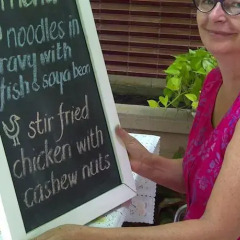 menu
noodles in
gravy with
fish & soya bean
stir fried
chicken with
cashew nuts